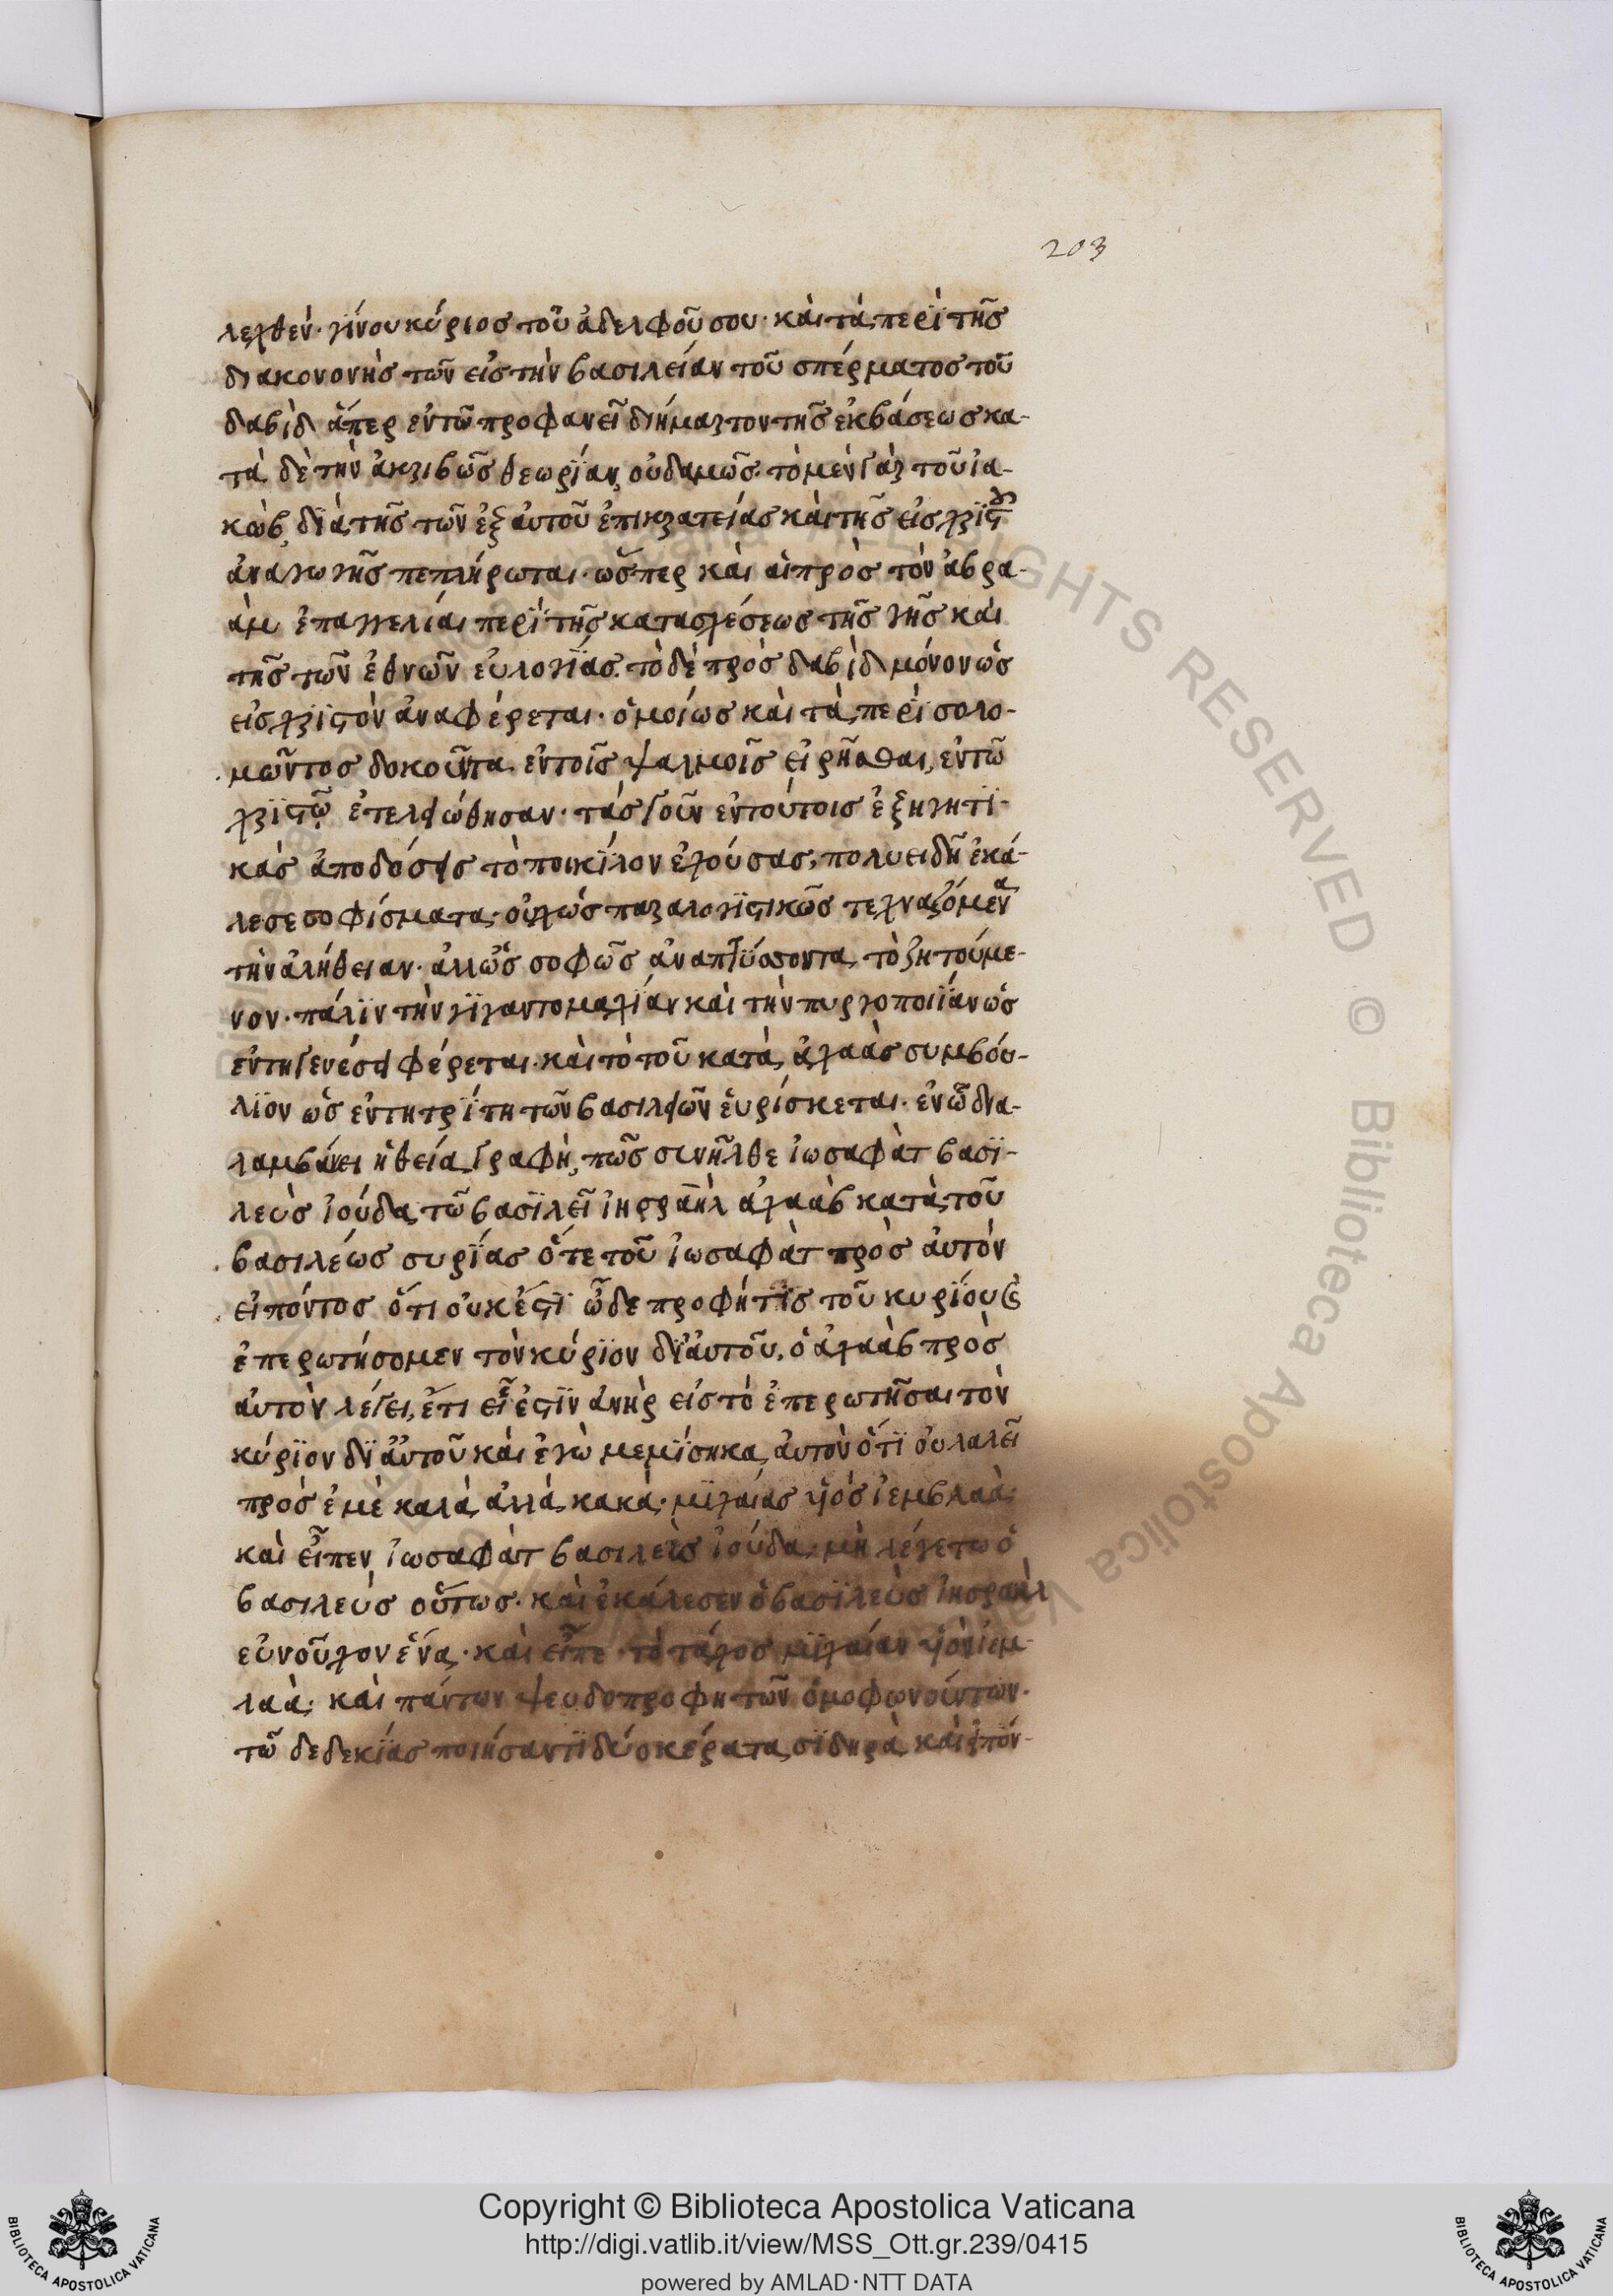 203
λεχθέν· γίνου κύριος τοῦ ἀδελφοῦ σου· καὶ τὰ περὶ τῆς
διακονονῆς τῶν εἰς τὴν βασιλείαν τοῦ σπέρματος τοῦ
δαβὶδ ἅπερ ἐν τῶ προφανεῖ διήμαρτον τῆς ἐκβάσεως κα-
τὰ δὲ τὴν ἀκριβῶς θεωρίαν, οὐδαμῶς. τὸ μὲν γὰρ τοῦ ἰα-
κὼβ, διὰ τῆς τῶν ἐξ αὐτοῦ ἐπικρατείας καὶ τῆς εἰς χριστὸν
ἀναγωγῆς πεπλήρωται· ὥσπερ καὶ αἱ πρὸς τὸν ἀβρα-
ὰμ ἐπαγγελίαι περὶ τῆς κατασχέσεως τῆς γῆς καὶ
τῆς τῶν ἐθνῶν εὐλογίας. τὸ δὲ πρὸς δαβὶδ μόνον ὡς
εἰς χριστὸν ἀναφέρεται· ὁμοίως καὶ τὰ περὶ σολο-
μῶντος δοκοῦντα ἐν τοῖς ψαλμοῖς εἰρῆσθαι, ἐν τῶ
χριστῶ ἐτελειώθησαν· τὰς γοῦν ἐν τούτοις ἐξηγητι-
κὰς ἀποδόσεις τὸ ποικίλον ἐχούσας, πολυειδῆ ἐκά-
λεσε σοφίσματα· οὐχ ὡς παραλογιστικῶς τεχναζόμενα
τὴν ἀλήθειαν· ἀλλ' ὡς σοφῶς ἀναπτύσσοντα τὸ ζητούμε-
νον· πάλιν τὴν γιγαντομαχίαν καὶ τὴν πυργοποιίαν ὡς
ἐν τῆ γενέσει φέρεται· καὶ τὸ τοῦ κατὰ ἀχαὰς συμβού-
λιον ὡς ἐν τῆ τρίτη τῶν βασιλειῶν εὑρίσκεται· ἐν ὧ δια-
λαμβάνει ἡ θεία γραφὴ, πῶς συνῆλθε ἰωσαφὰτ βασι-
λεὺς ἰούδα τῶ βασιλεῖ ἰησραὴλ ἀχαὰβ κατὰ τοῦ
βασιλέως συρίας ὅτε τοῦ ἰωσαφὰτ πρὸς αὐτὸν
εἰπόντος ὅτι οὐκ ἔστι ὧδε προφήτης τοῦ κυρίου καὶ
ἐπερωτήσομεν τὸν κύριον δι' αὐτοῦ, ὁ ἀχαὰβ πρὸς
αὐτὸν λέγει, ἔτι εἷς ἐστὶν ἀνὴρ εἰς τὸ ἐπερωτῆσαι τὸν
κύριον δι' αὐτοῦ καὶ ἐγὼ μεμίσηκα αὐτὸν ὅτι οὐ λαλεῖ
πρὸς ἐμὲ καλὰ ἀλλὰ κακά· μιχαίας υἱὸς ἰεμβλαὰ·
καὶ εἶπεν ἰωσαφὰτ βασιλεὺς ἰούδα· μὴ λέγετω ὁ
βασιλεὺς οὕτως· καὶ ἐκάλεσεν ὁ βασιλεὺς ἰησραὴλ
εὐνοῦχον ἕνα· καὶ εἶπε· τὸ τάχος μιχαίαν υἱὸν ἰεμ-
λαὰ· καὶ πάντων ψευδοπροφητῶν ὁμοφωνούντων·
τῶ δεδεκίας ποιήσαντι δύο κέρατα σιδηρὰ καὶ εἰπόν-
Copyright © Biblioteca Apostolica Vaticana
http://digi.vatlib.it/view/MSS_Ott.gr.239/0415
powered by AMLAD·NTT DATA